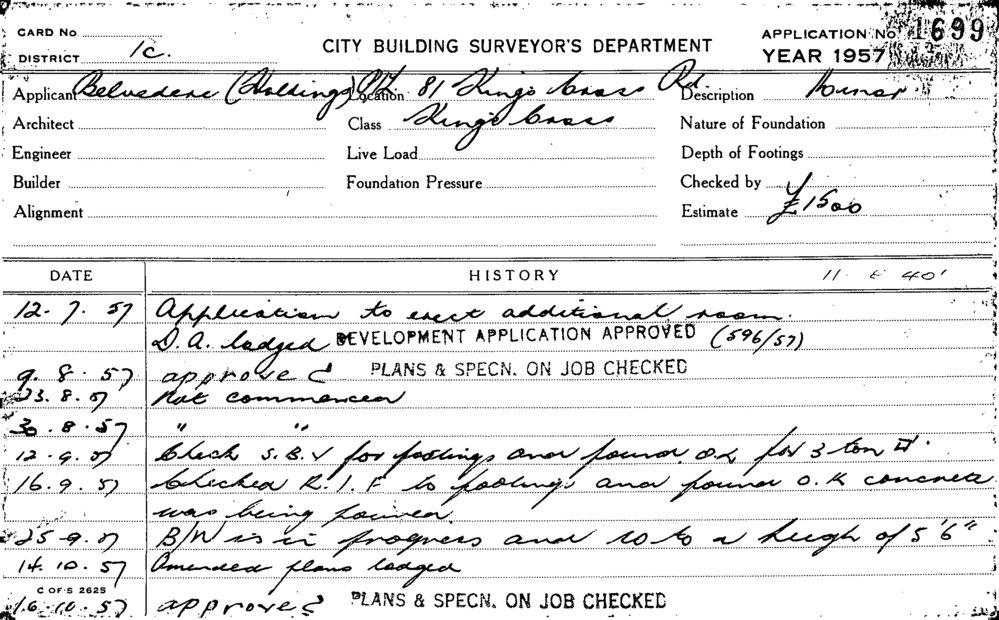 CARD No.
DISTRICT 1c.
CITY BUILDING SURVEYOR'S DEPARTMENT
APPLICATION No 1699
YEAR 1957
Applicant Belvedere (Holdings) P/L Location 81 Kings Cross Rd Description Minor
Architect Class Kings Cross Nature of Foundation
Engineer Live Load Depth of Footings
Builder Foundation Pressure Checked by
Alignment Estimate £1500
DATE HISTORY 11 40'
12. 7. 57 Application to erect additional room.
D.A. lodged DEVELOPMENT APPLICATION APPROVED (596/57)
9. 8. 57 approved PLANS & SPECN. ON JOB CHECKED
23. 8. 57 Not commenced
30. 8. 57 " "
12. 9. 57 Check S.B.V for footings and found O.K for 3 ton
16. 9. 57 Checked R.I.F to footings and found O.K concrete
was being poured.
25. 9. 57 B/W is in progress and to a heigh of 5'6"
14. 10. 57 Amended plans lodged
C OF S 2625
16. 10. 57 approved PLANS & SPECN. ON JOB CHECKED